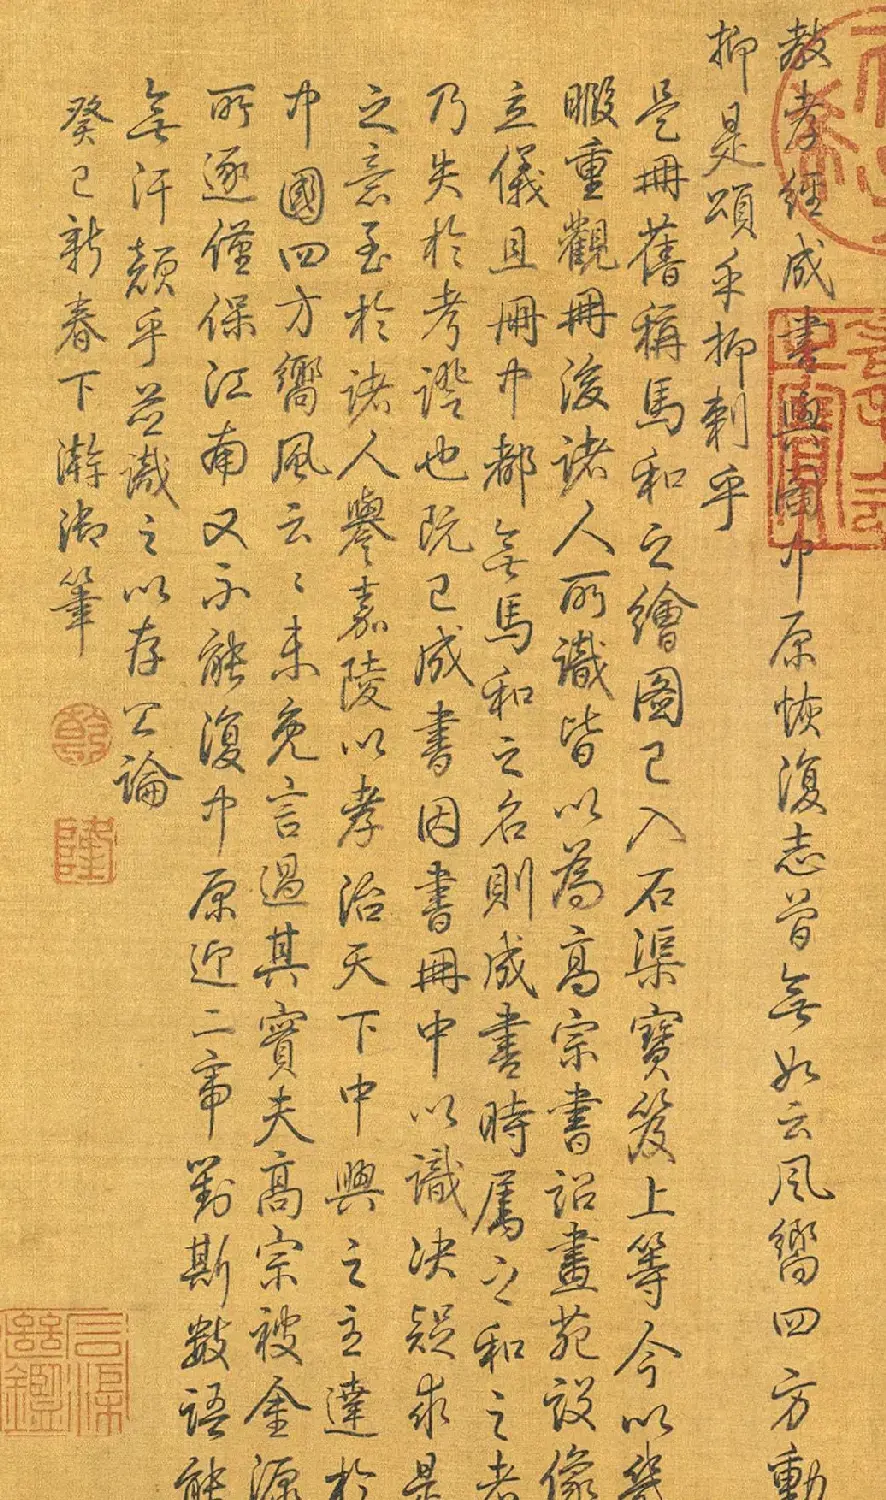 教孝經成書與圖中原恢復志曾無如云風嚮四方動
抑是頌乎抑刺乎
是冊舊稱馬和之繪圖已入石渠寶笈上等今以幾
暇重觀冊後諸人所識皆以為高宗書詔畫苑設像
立儀且冊中都無馬和之名則成書時屬之和之者
乃失於考證也既已成書因書冊中以識決疑求是
之意至於諸人譽嘉陵以孝治天下中興之主達於
中國四方嚮風云〻未免言過其實夫高宗被金源
所逐僅保江南又不能復中原迎二帝對斯數語能
無汗顏乎並識之以存公論
癸巳新春下澣御筆
乾
隆